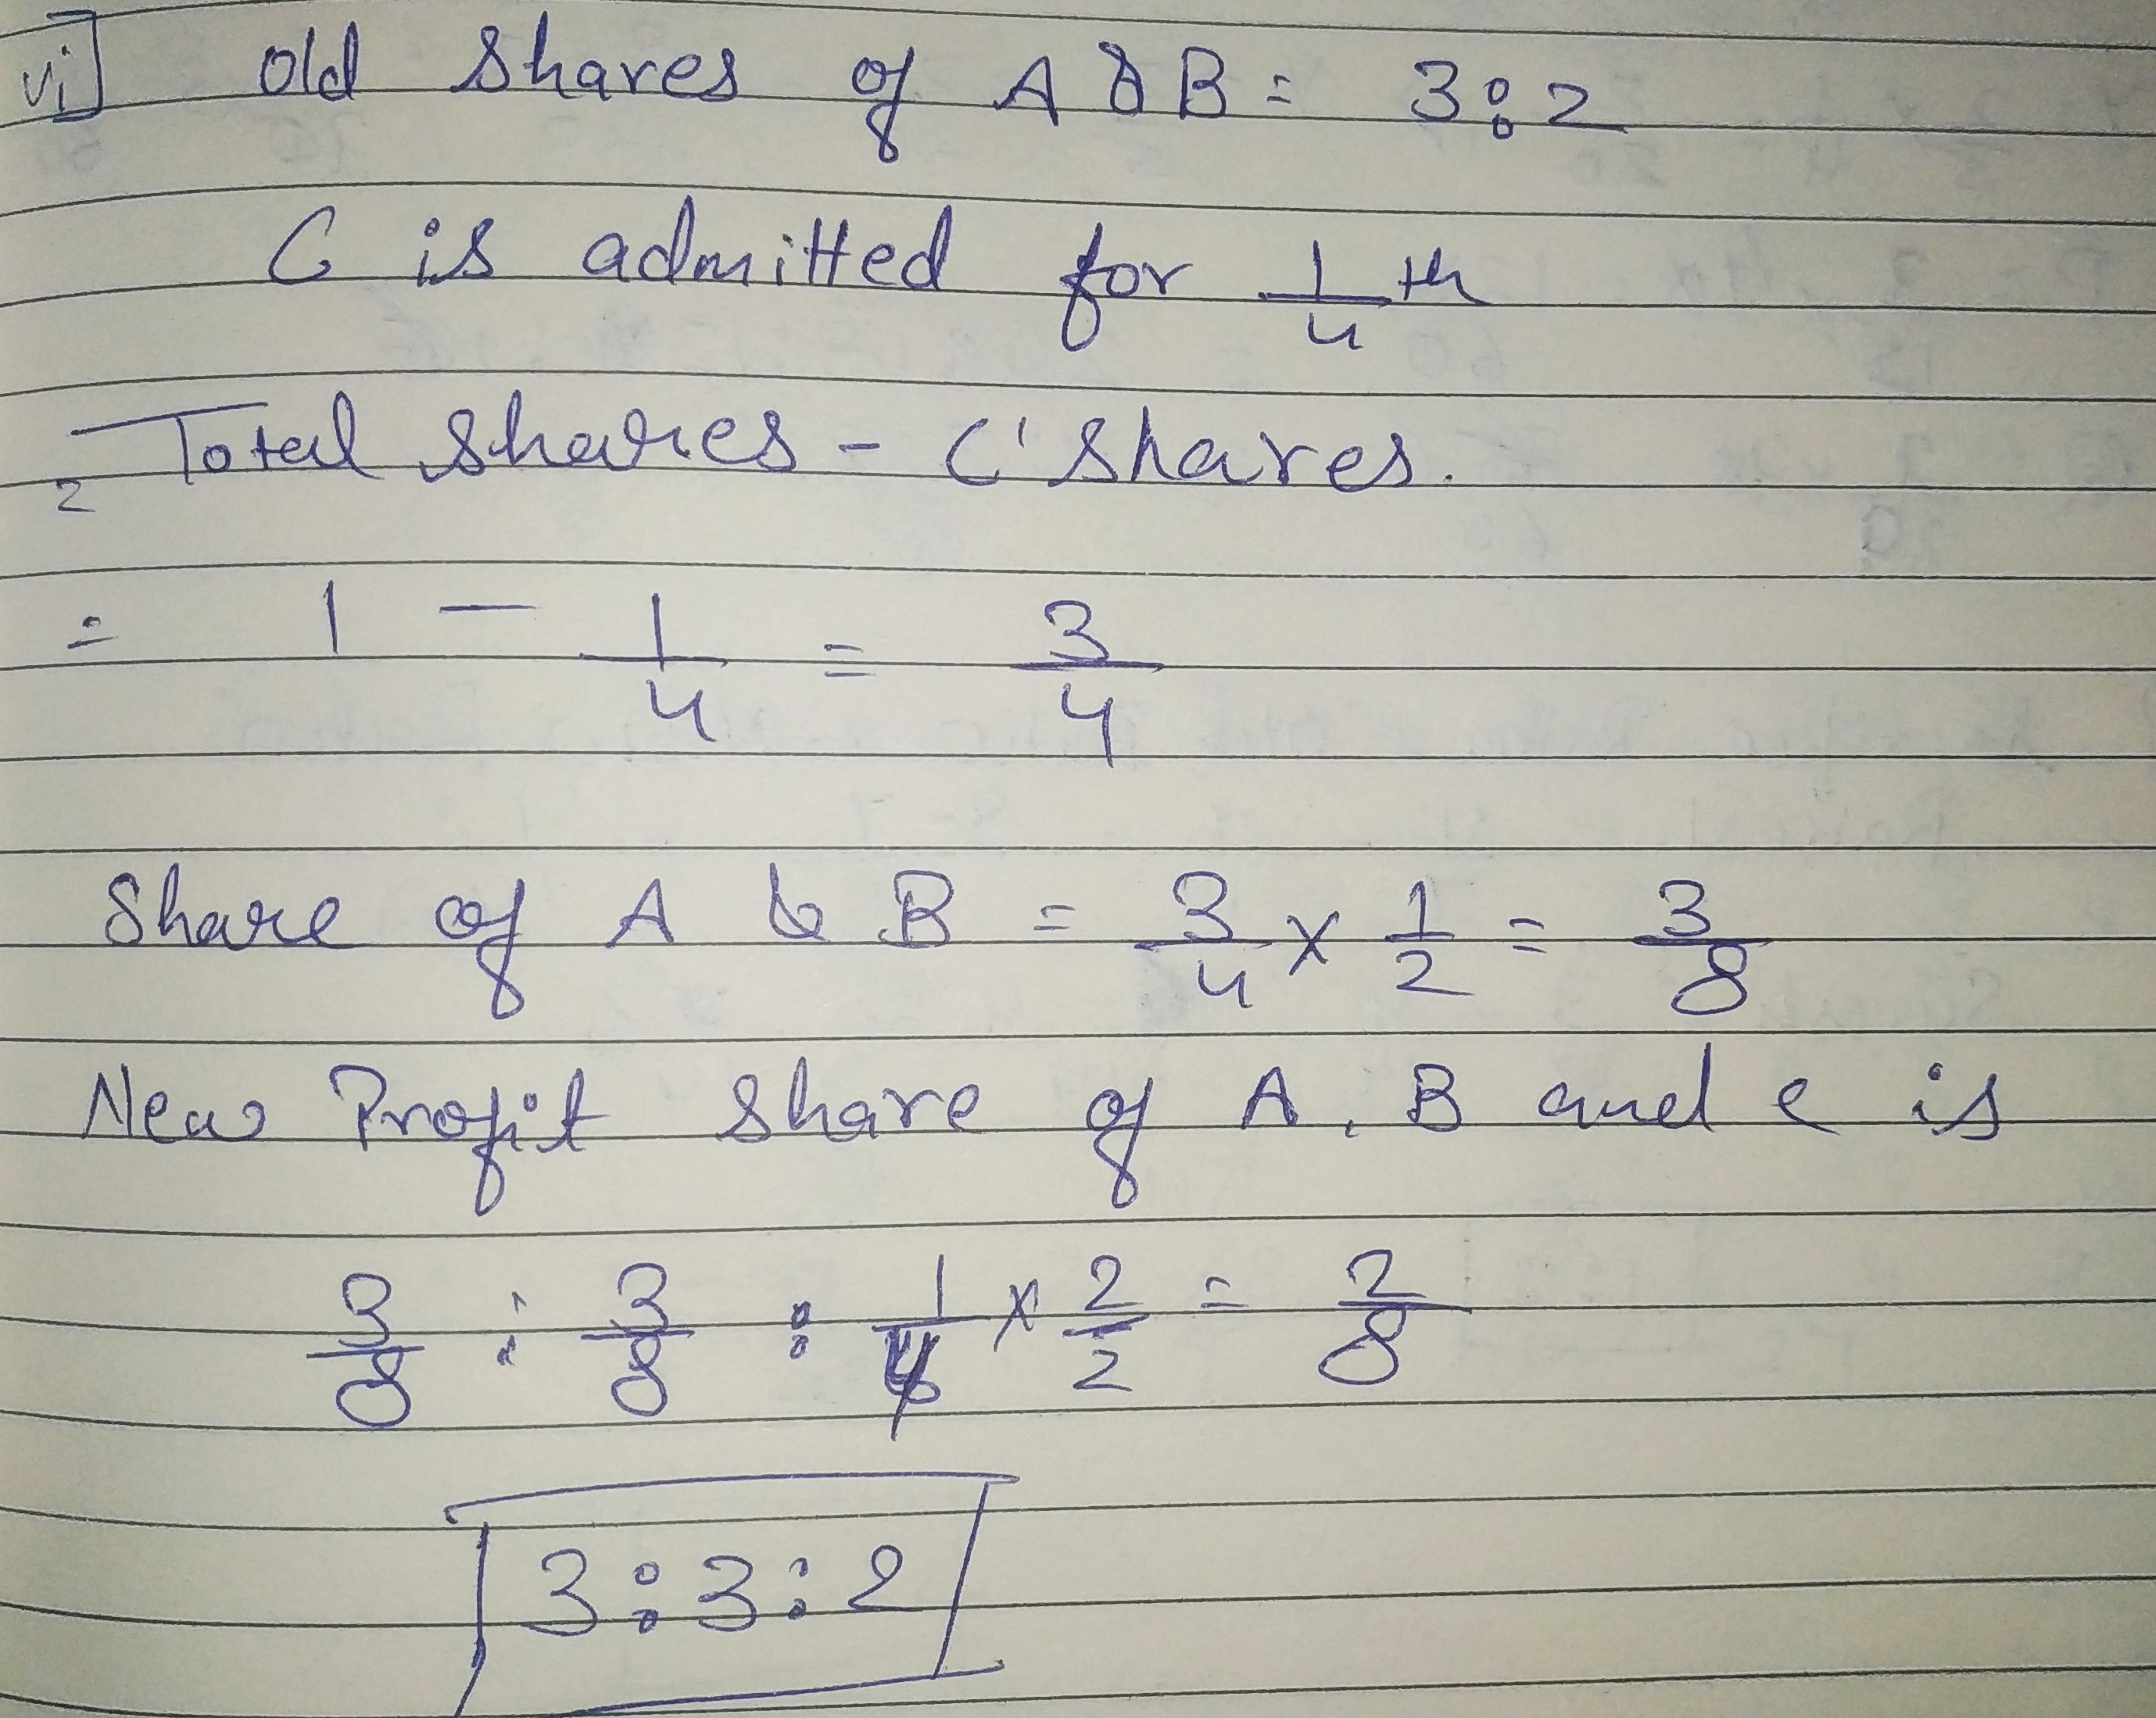 vi] Old Shares of A & B = 3:2
C is admitted for 1/4 th
Total shares - C' shares.
=
= 1 - 1/4 = 3/4
Share of A & B = 3/4 x 1/2 = 3/8
New Profit Share of A, B and C is
3/8 : 3/8 : 1/4 x 2/2 = 2/8
3:3:2